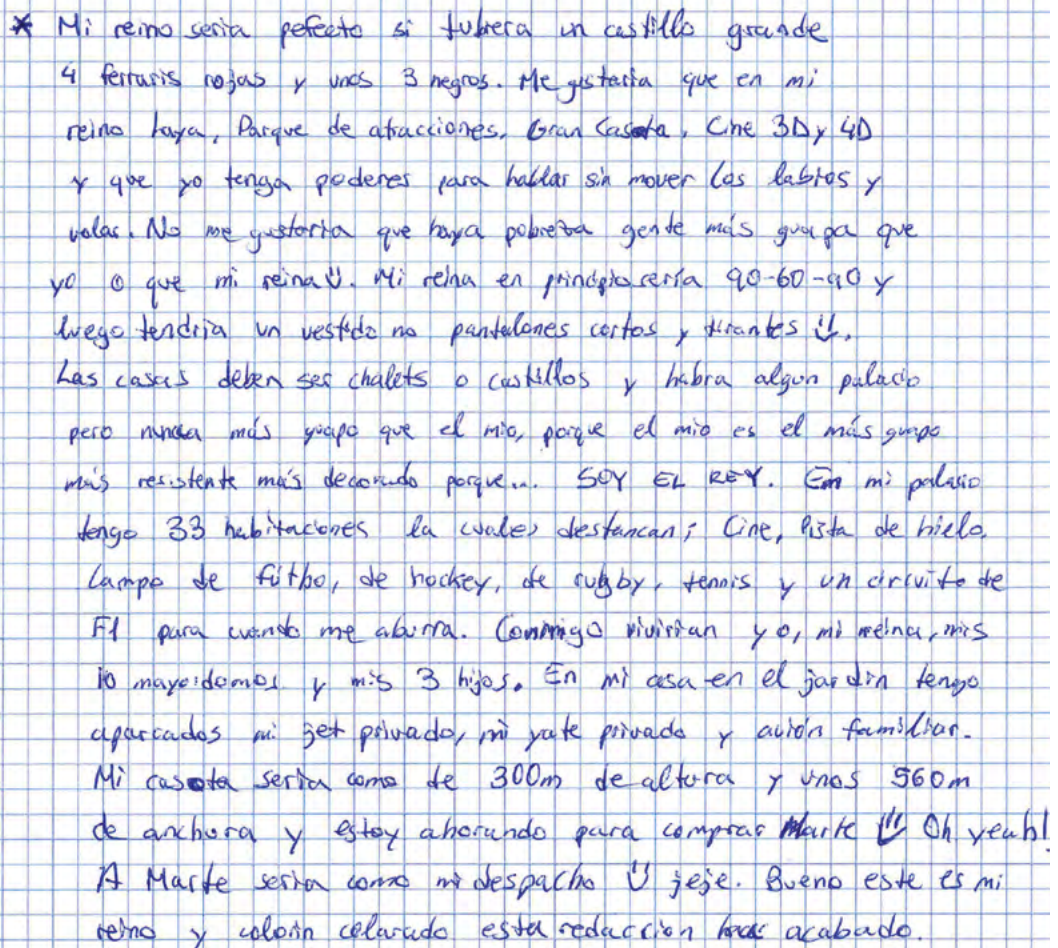 * Mi reino seria pefecto si tubiera un castillo grande
4 ferraris rojas y unos 3 negros. Me gustaria que en mi
reino haya, Parque de atracciones, Gran Casota, Cine 3D y 4D
y que yo tenga poderes para hablar sin mover los labios y
volar. No me gustaria que haya pobreza gente más guapa que
yo o que mi reina. Mi reina en principio sería 90-60-90 y
luego tendria un vestido no pantalones cortos y tirantes.
Las casas deben ser chalets o castillos y habra algun palacio
pero nunca más guapo que el mio, porque el mio es el más guapo
más resistente más decorado porque... SOY EL REY. Em mi palasio
tengo 33 habitaciones la cuales destancan; Cine, Pista de hielo,
Campo de fútbo, de hockey, de rugby, tennis y un circuito de
F1 para cuando me aburra. Conmigo vivirian yo, mi reina, mis
10 mayordomos y mis 3 hijos. En mi casa en el jardin tengo
aparcados mi jet privado, mi yate privado y avión familiar.
Mi casota seria como de 300m de altura y unos 560m
de anchura y estoy ahorando para comprar Marte Oh yeah!
A Marte seria como mi despacho jeje. Bueno este es mi
reino y colorin colarado esta redaccion has acabado.